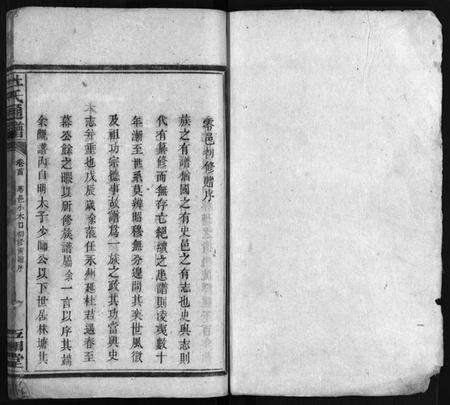 零邑初修譜序
族之有譜猶國之有史邑之有志也史與志則
代有纂修而無存亡絕續之患譜則凌夷數十
年漸至世系莫辨昭穆無分遑問其奕世風徽
及祖功宗德事故譜爲一族之政其功當與史
志並重也戊辰歲余蒞任永州延杜君過春至
幕公餘之暇以所修族譜屬余一言以序其端
余觀譜內自明太子少師公以下世居林塘其
杜氏通譜
卷首
初修譜序
堂